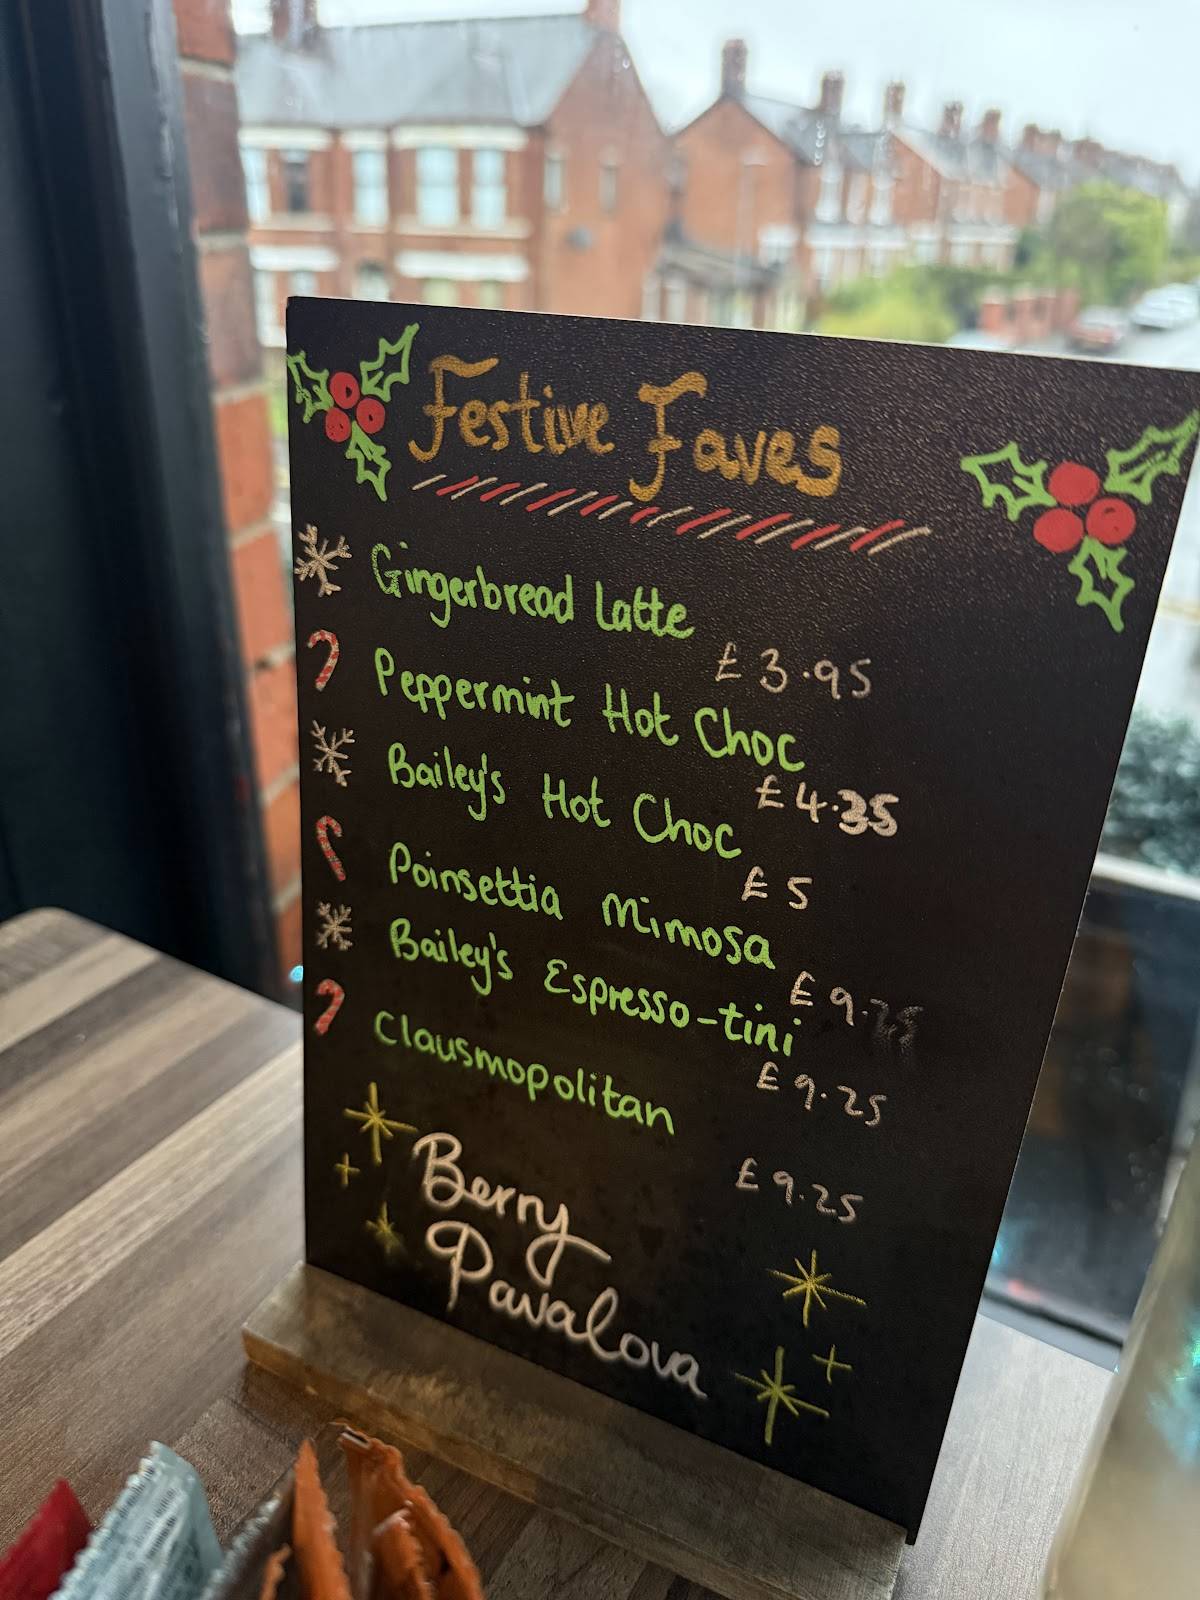 Festive Faves
Gingerbread Latte
£3.95
Peppermint Hot Choc
£4.35
Bailey's Hot Choc
£5
Poinsettia Mimosa
£9.25
Bailey's Espresso-tini
£9.25
Clausmopolitan
£9.25
Berry
Pavalova